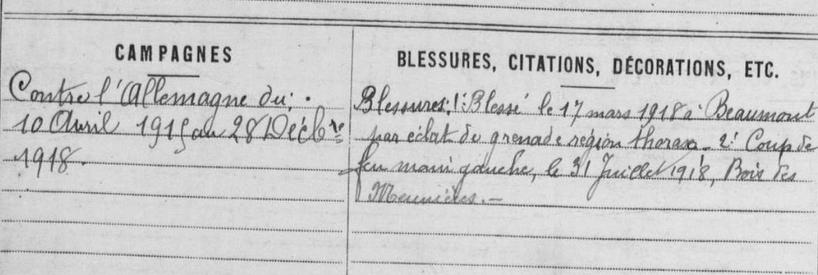 CAMPAGNES
Contre l'Allemagne du :
10 Avril 1915 au 28 Décbre
1918.
BLESSURES, CITATIONS, DÉCORATIONS, ETC.
Blessures: 1: Blessé le 17 mars 1918 à Beaumont
par éclat de grenade région thorax - 2: Coup de
feu main gauche, le 31 Juillet 1918, Bois des
Meunières. -